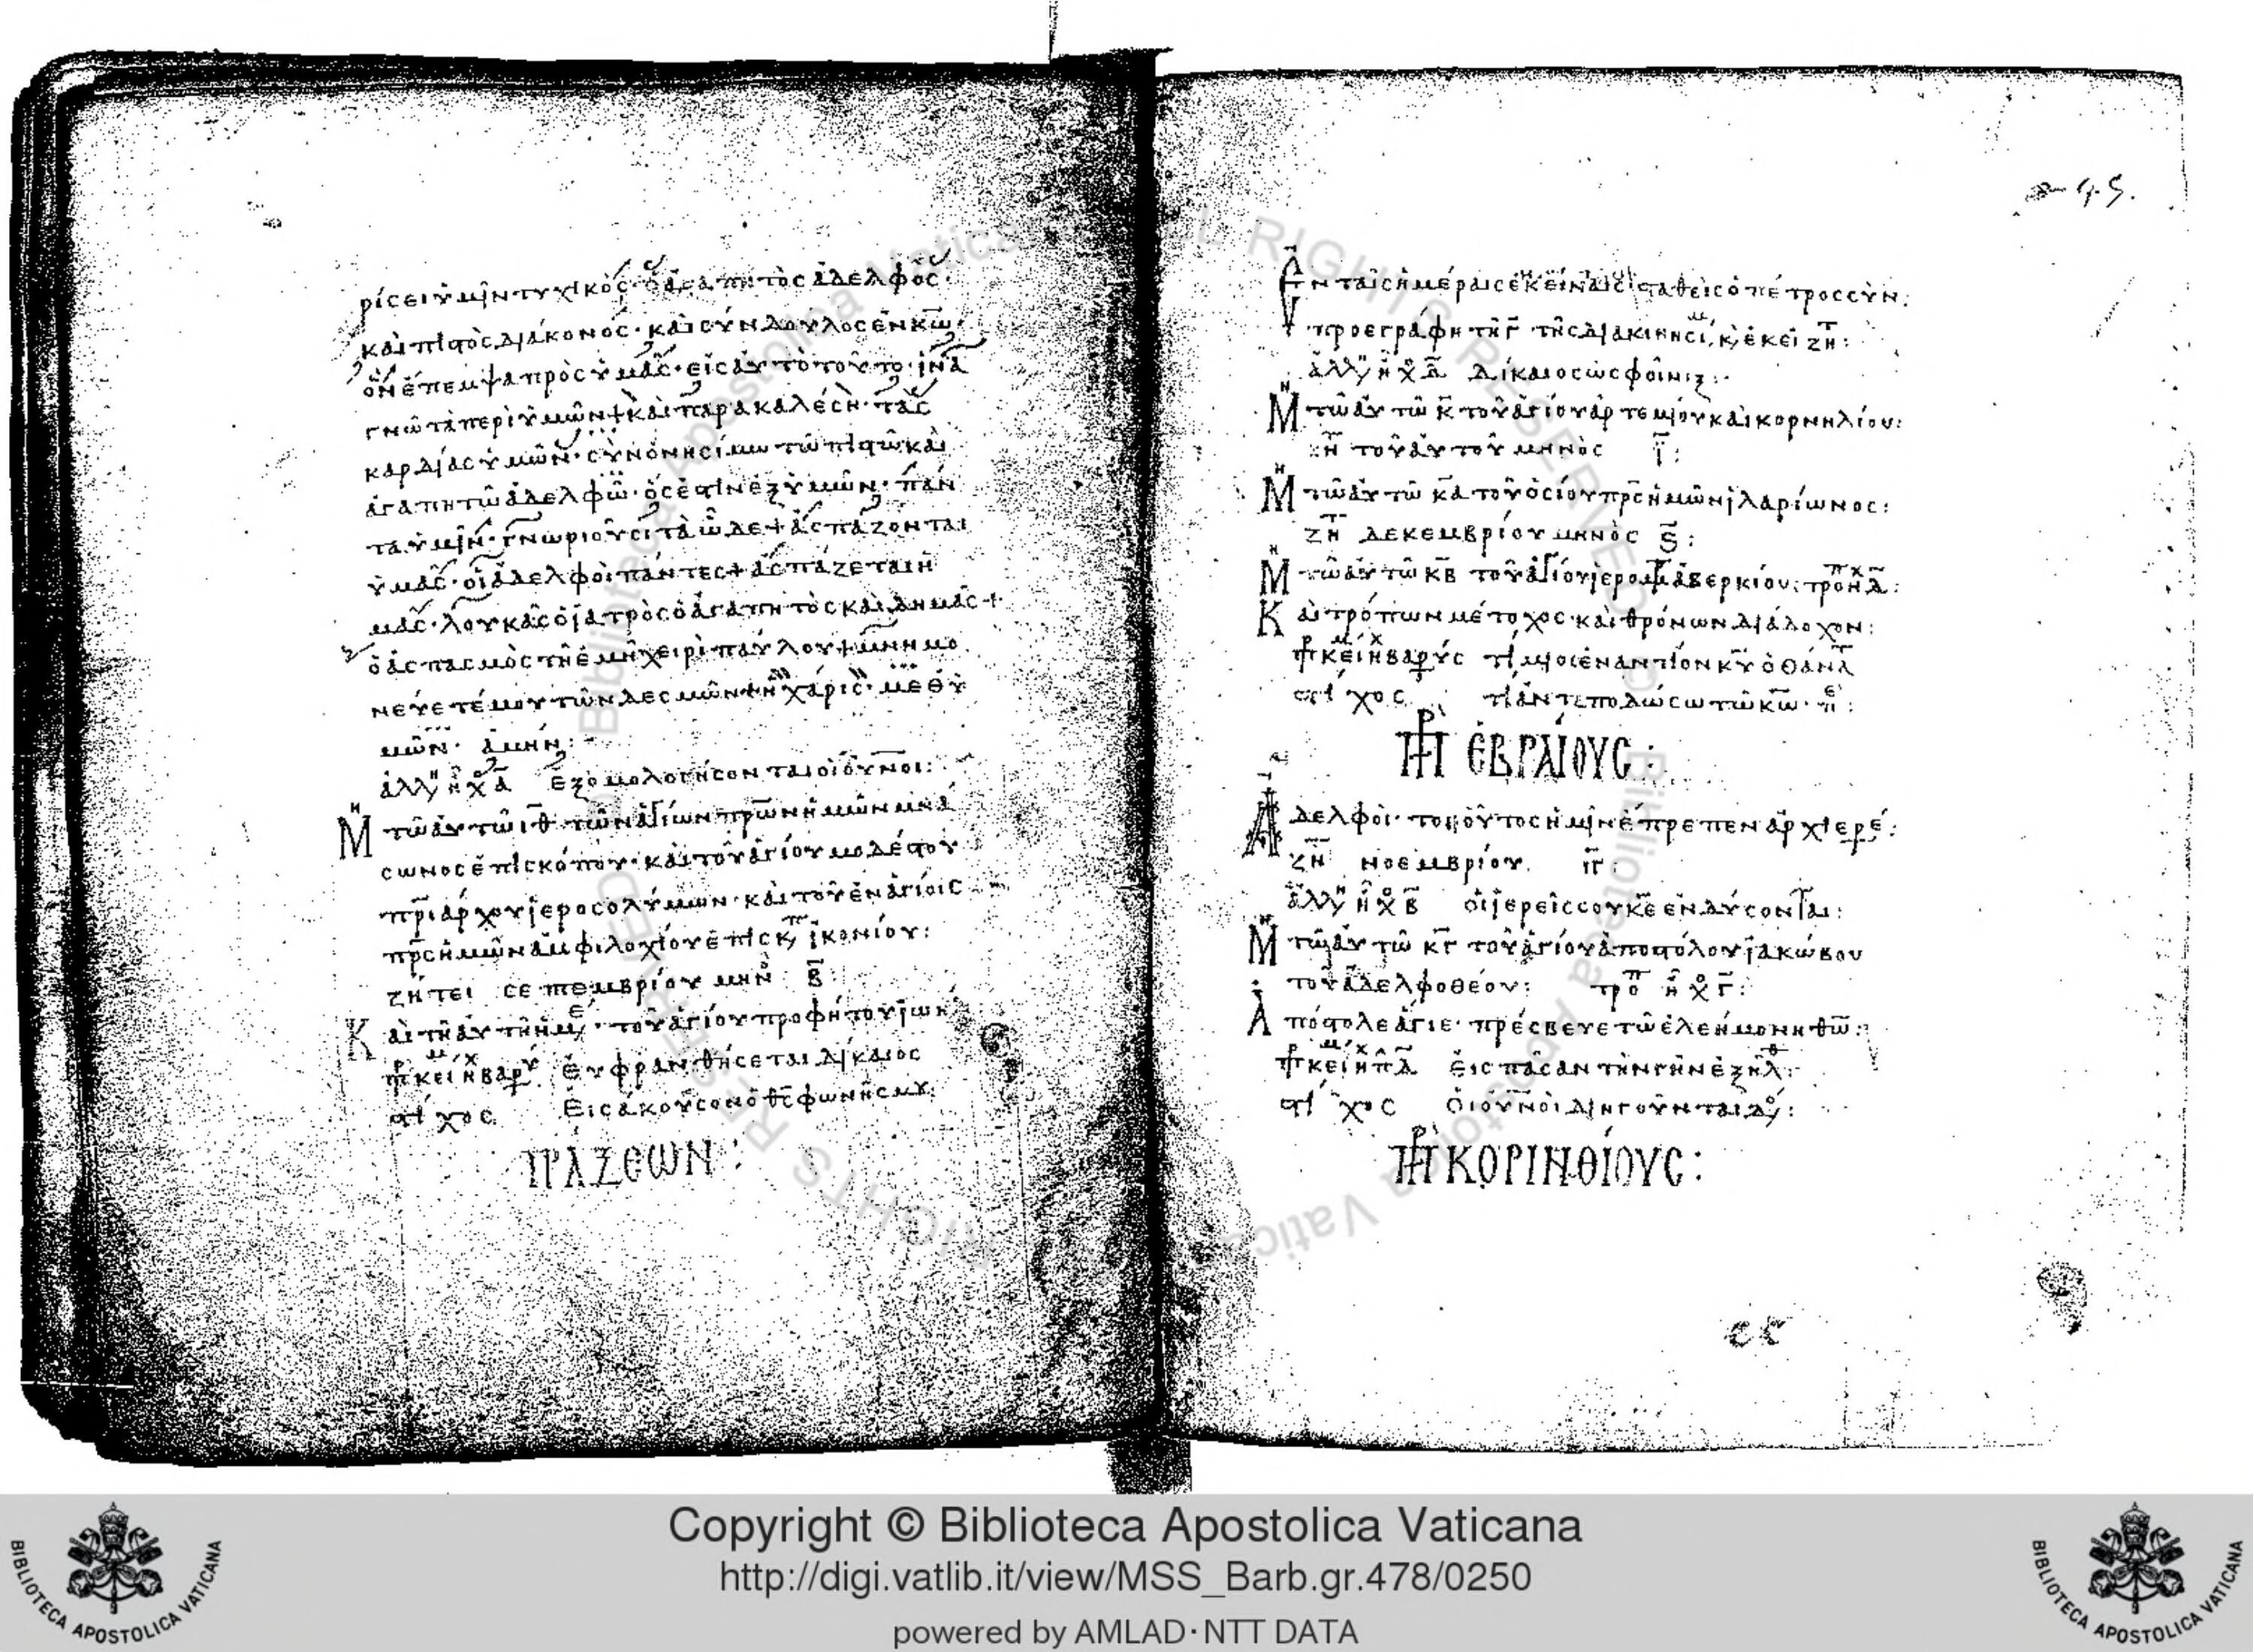 ρίσει ὑμῖν τυχικὸς ὁ ἀγαπητὸς ἀδελφὸς·
καὶ πιστὸς διάκονος· καὶ σύνδουλος ἐν κω·
ὃν ἔπεμψα πρὸς ὑμᾶς· εἰς αὐτὸ τοῦτο· ἵνα
γνῶ τὰ περὶ ὑμῶν + καὶ παρακαλέση· τὰς
καρδίας ὑμῶν· σὺν ὀνησίμω τῶ πιστῶ καὶ
ἀγαπητῶ ἀδελφῶ· ὅς ἐστιν ἐξ ὑμῶν· πάν
τα ὑμῖν· γνωριοῦσι τὰ ὧδε + ἀσπάζονται
ὑμᾶς· οἱ ἀδελφοὶ πάντες + ἀσπάζεται ἡ
μᾶς· λουκᾶς ὁ ἰατρὸς ὁ ἀγαπητὸς καὶ δημᾶς +
ὁ ἀσπασμὸς τῆ ἐμῆ χειρὶ παύλου + μνημο
νεύετέ μου τῶν δεσμῶν + ἡ χάρις· μεθ ὑ
μῶν· ἀμήν:
ἀλλη ἦχ α Ἐξομολογησονται οἱ ουνοι:
Μ τῶ αὐτῶ ιθ τῶν ἁγίων πρων ἡμῶν μνα
σωνος ἐπισκόπου· καὶ τοῦ ἁγίου μοδέστου
πριάρχου ἱεροσολύμων· καὶ τοῦ ἐν ἁγίοις
πρς ἡμῶν ἀμφιλοχίου ἐπισκ ἰκονίου:
ζήτει σεπτεμβρίου μην β:
Καὶ τῆ αὐτῆ ἡμε· τοῦ ἁγίου προφήτου ἰωὴ
πρκει ἦ βαρυ Ἐυφρανθήσεται δίκαιος
στίχος Εἰσάκουσον ὁ θς φωνῆς μου:
ΠΡΑΞΕΩΝ:
Ἐν ταῖς ἡμέραις ἐκείναις σταθεὶς ὁ πέτρος σὺν.
προεγράφη τῆ γ τῆς διακινησί, κ, ἐκεῖ ζη:
ἀλλη ἦχ δ Δίκαιος ὡς φοῖνιξ:
Μ τῶ αὐτῶ κ τοῦ ἁγίου ἀρτεμίου καὶ κορνηλίου:
ζη τοῦ αὐτοῦ μηνὸς
Μ τῶ αὐτῶ κα τοῦ ὁσίου πρς ἡμῶν ἱλαρίωνος:
ζη δεκεμβρίου μηνὸς ς:
Μ τῶ αὐτῶ κβ τοῦ ἁγίου ἱερομ ἀβερκίου: τρο ἠ δ:
Καὶ τρόπων μέτοχος· καὶ θρόνων διάδοχον:
πρκει ἦ βαρὺς τίμιος ἐναντίον κυ ὁ θάνατ
στίχος τί ἀνταποδώσω τῶ κω·
ΠΡ ἙΒΡΑΙΟΥΣ:
Ἀδελφοί· τοιοῦτος ἡμῖν ἔπρεπεν ἀρχιερε:
ζη νοεμβρίου. ιγ:
ἀλλη ἦχ β οἱ ἱερεῖς σου κε ἐνδύσονται:
Μ τῶ αὐτῶ κγ τοῦ ἁγίου ἀποστόλου ἰακώβου
τοῦ ἀδελφοθέου: τρο ἦχ γ:
Ἀπόστολε ἅγιε· πρέσβευε τῶ ἐλεήμονη θω:
πρκει ἦ πλ α Εἰς πᾶσαν τὴν γῆν ἐξῆλθ
στίχος Οἱ ουνοὶ διηγοῦνται δο:
ΠΡ ΚΟΡΙΝΘΙΟΥΣ:
Copyright © Biblioteca Apostolica Vaticana
http://digi.vatlib.it/view/MSS_Barb.gr.478/0250
powered by AMLAD·NTT DATA
BIBLIOTECA APOSTOLICA VATICANA
BIBLIOTECA APOSTOLICA VATICANA